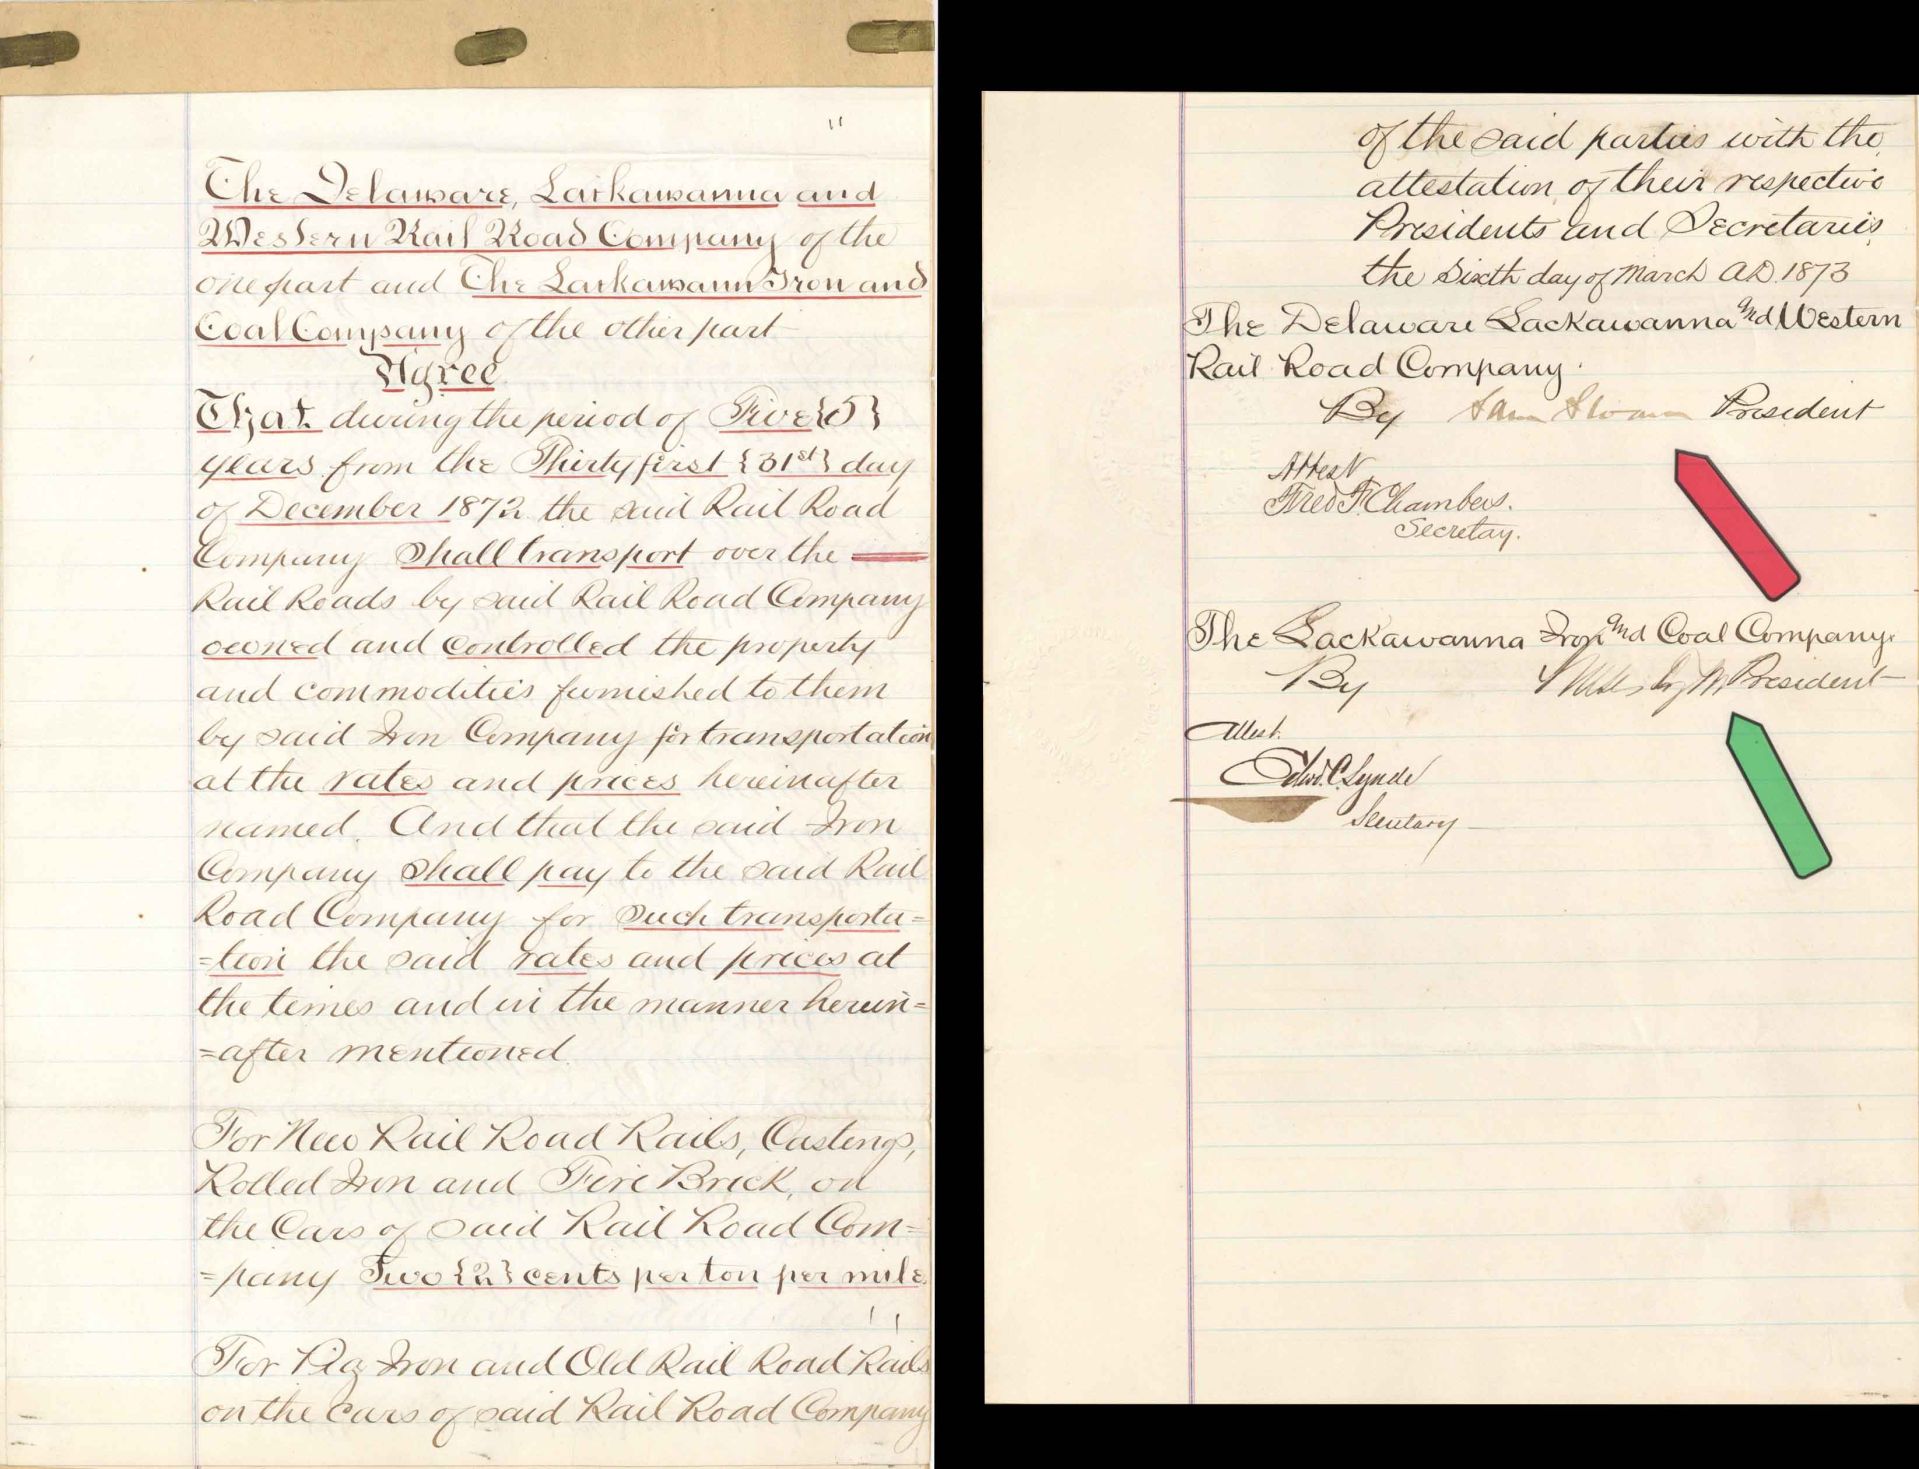 The Delaware, Lackawanna and
Western Rail Road Company of the
one part and The Lackawanna Iron and
Coal Company of the other part
Agree
That during the period of Five {5}
years from the Thirty first {31st} day
of December 1872 the said Rail Road
Company shall transport over the
Rail Roads by said Rail Road Company
owned and controlled the property
and commodities furnished to them
by said Iron Company for transportation
at the rates and prices hereinafter
named. And that the said Iron
Company shall pay to the said Rail
Road Company for such transporta=
=tion the said rates and prices at
the times and in the manner herein=
=after mentioned.
For New Rail Road Rails, Castings,
Rolled Iron and Fire Brick, on
the Cars of said Rail Road Com=
=pany Two {2} cents per ton per mile.
For Pig Iron and Old Rail Road Rails
on the cars of said Rail Road Company
of the said parties with the
attestation of their respective
Presidents and Secretaries
the Sixth day of March A.D. 1873
The Delaware Lackawanna and Western
Rail Road Company.
By Sam Sloan President
Attest
Fred F. Chambers.
Secretay.
The Lackawanna Iron and Coal Company.
By President
Attest.
Edwd. C. Lynde
Secretary